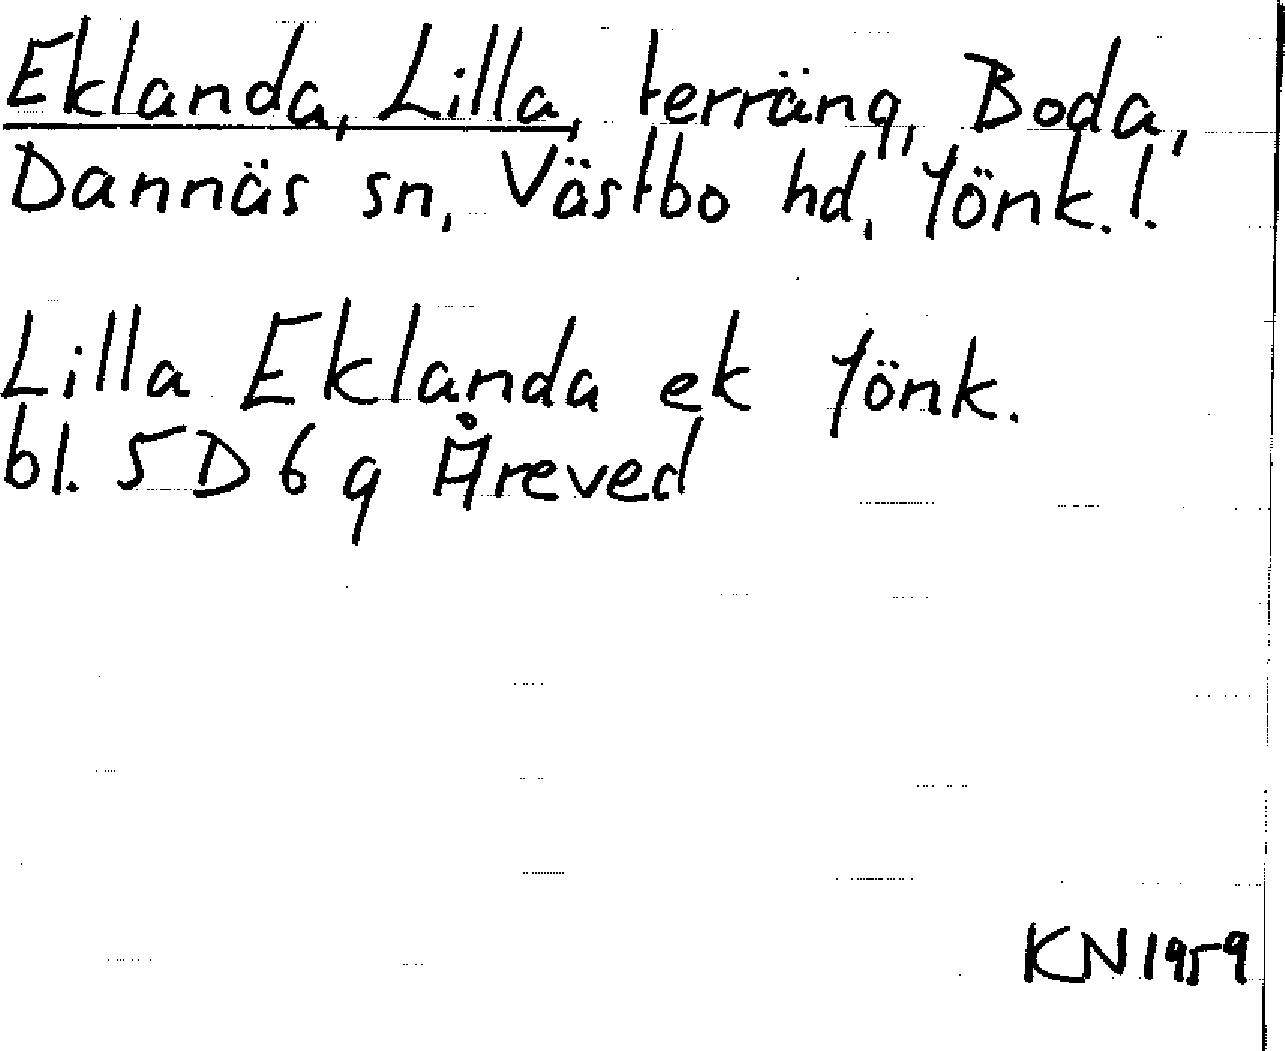 Eklanda, Lilla, terräng, Boda,
Dannäs sn, Västbo hd, Jönk.l.
Lilla Eklanda ek Jönk.
bl. 5D6g Åreved
KN1959